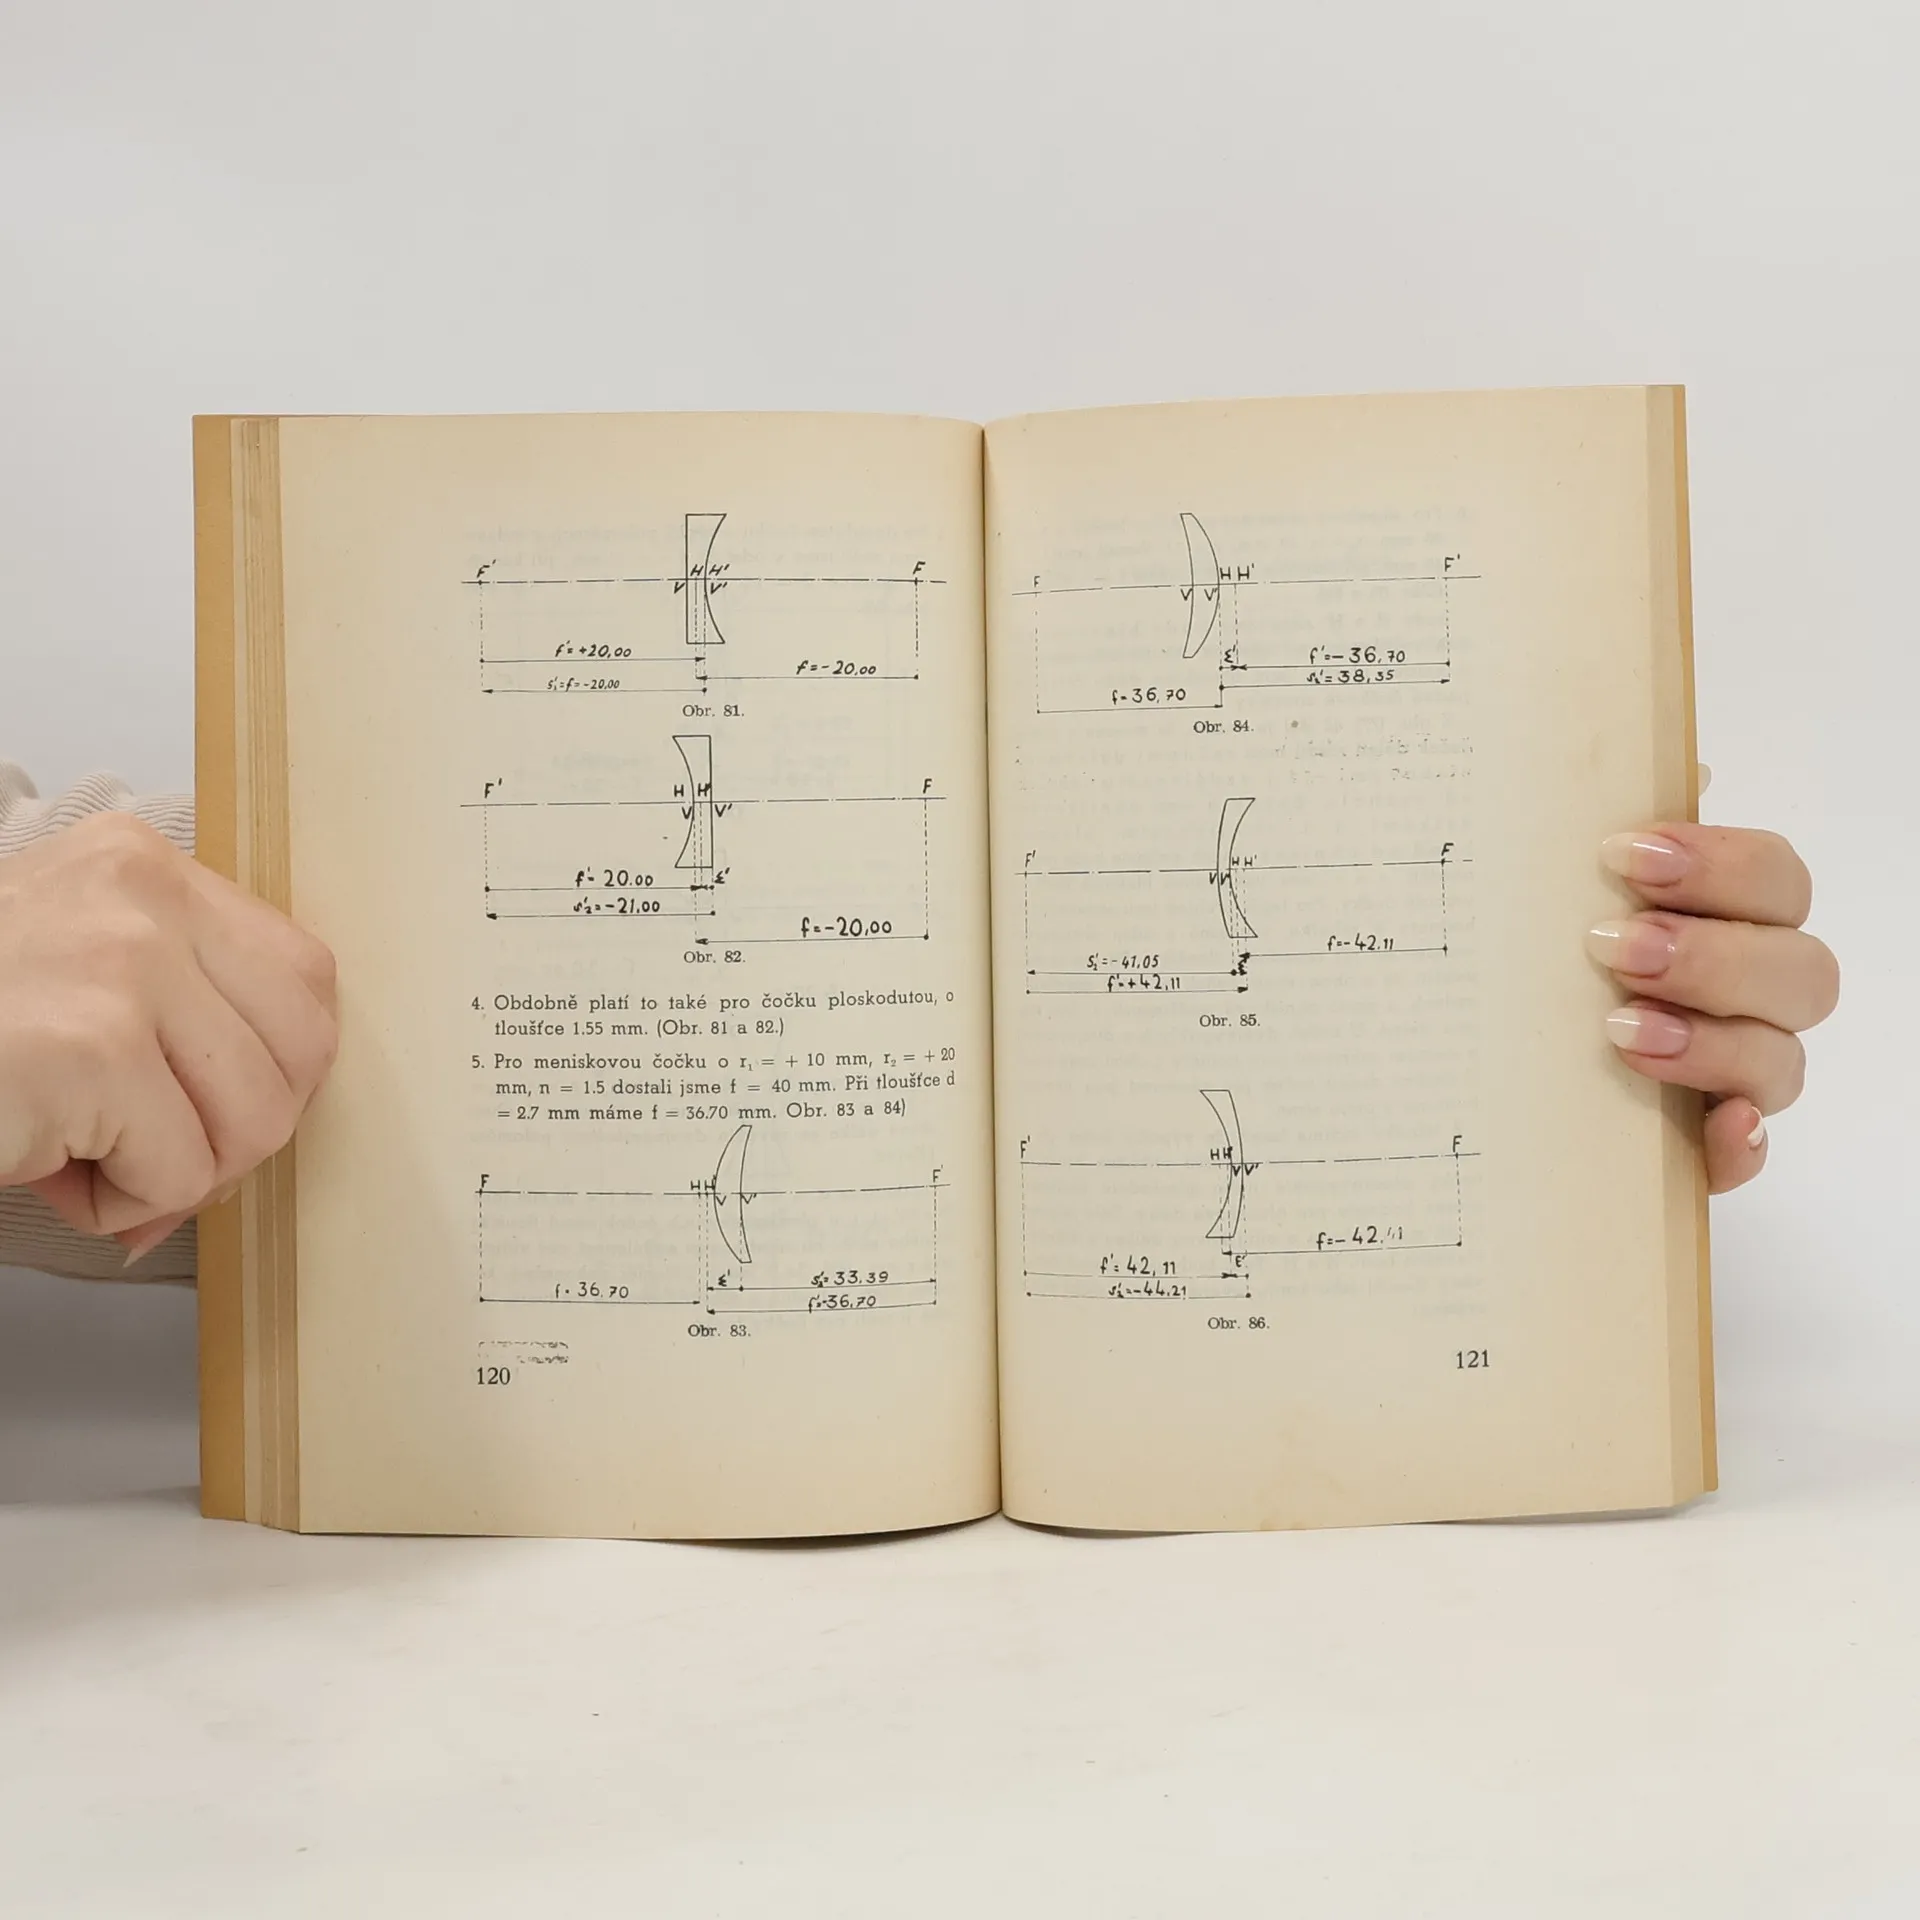 F' H H' F
V V'
f'= +20,00
f=-20,00
s₁'=f=-20,00
Obr. 81.
F' H H' F
V V'
f'- 20.00 ε'
s₂'=-21,00
f=-20,00
Obr. 82.
4. Obdobně platí to také pro čočku ploskodutou, o
tloušťce 1.55 mm. (Obr. 81 a 82.)
5. Pro meniskovou čočku o r₁ = + 10 mm, r₂ = + 20
mm, n = 1.5 dostali jsme f = 40 mm. Při tloušťce d
= 2.7 mm máme f = 36.70 mm. Obr. 83 a 84)
F H H' F'
V V'
f· 36,70 ε' s₂'= 33,39
f'=-36,70
Obr. 83.
120
F H H' F'
V V'
ε' f'=-36,70
s₂'=38,35
f-36,70
Obr. 84.
F' H H' F
V V'
f=-42.11
s₂'=-41,05 ε'
f'=+42,11
Obr. 85.
F' H H' F
V V'
f=-42,11
f'= 42,11 ε'
s₂'=-44.21
Obr. 86.
121